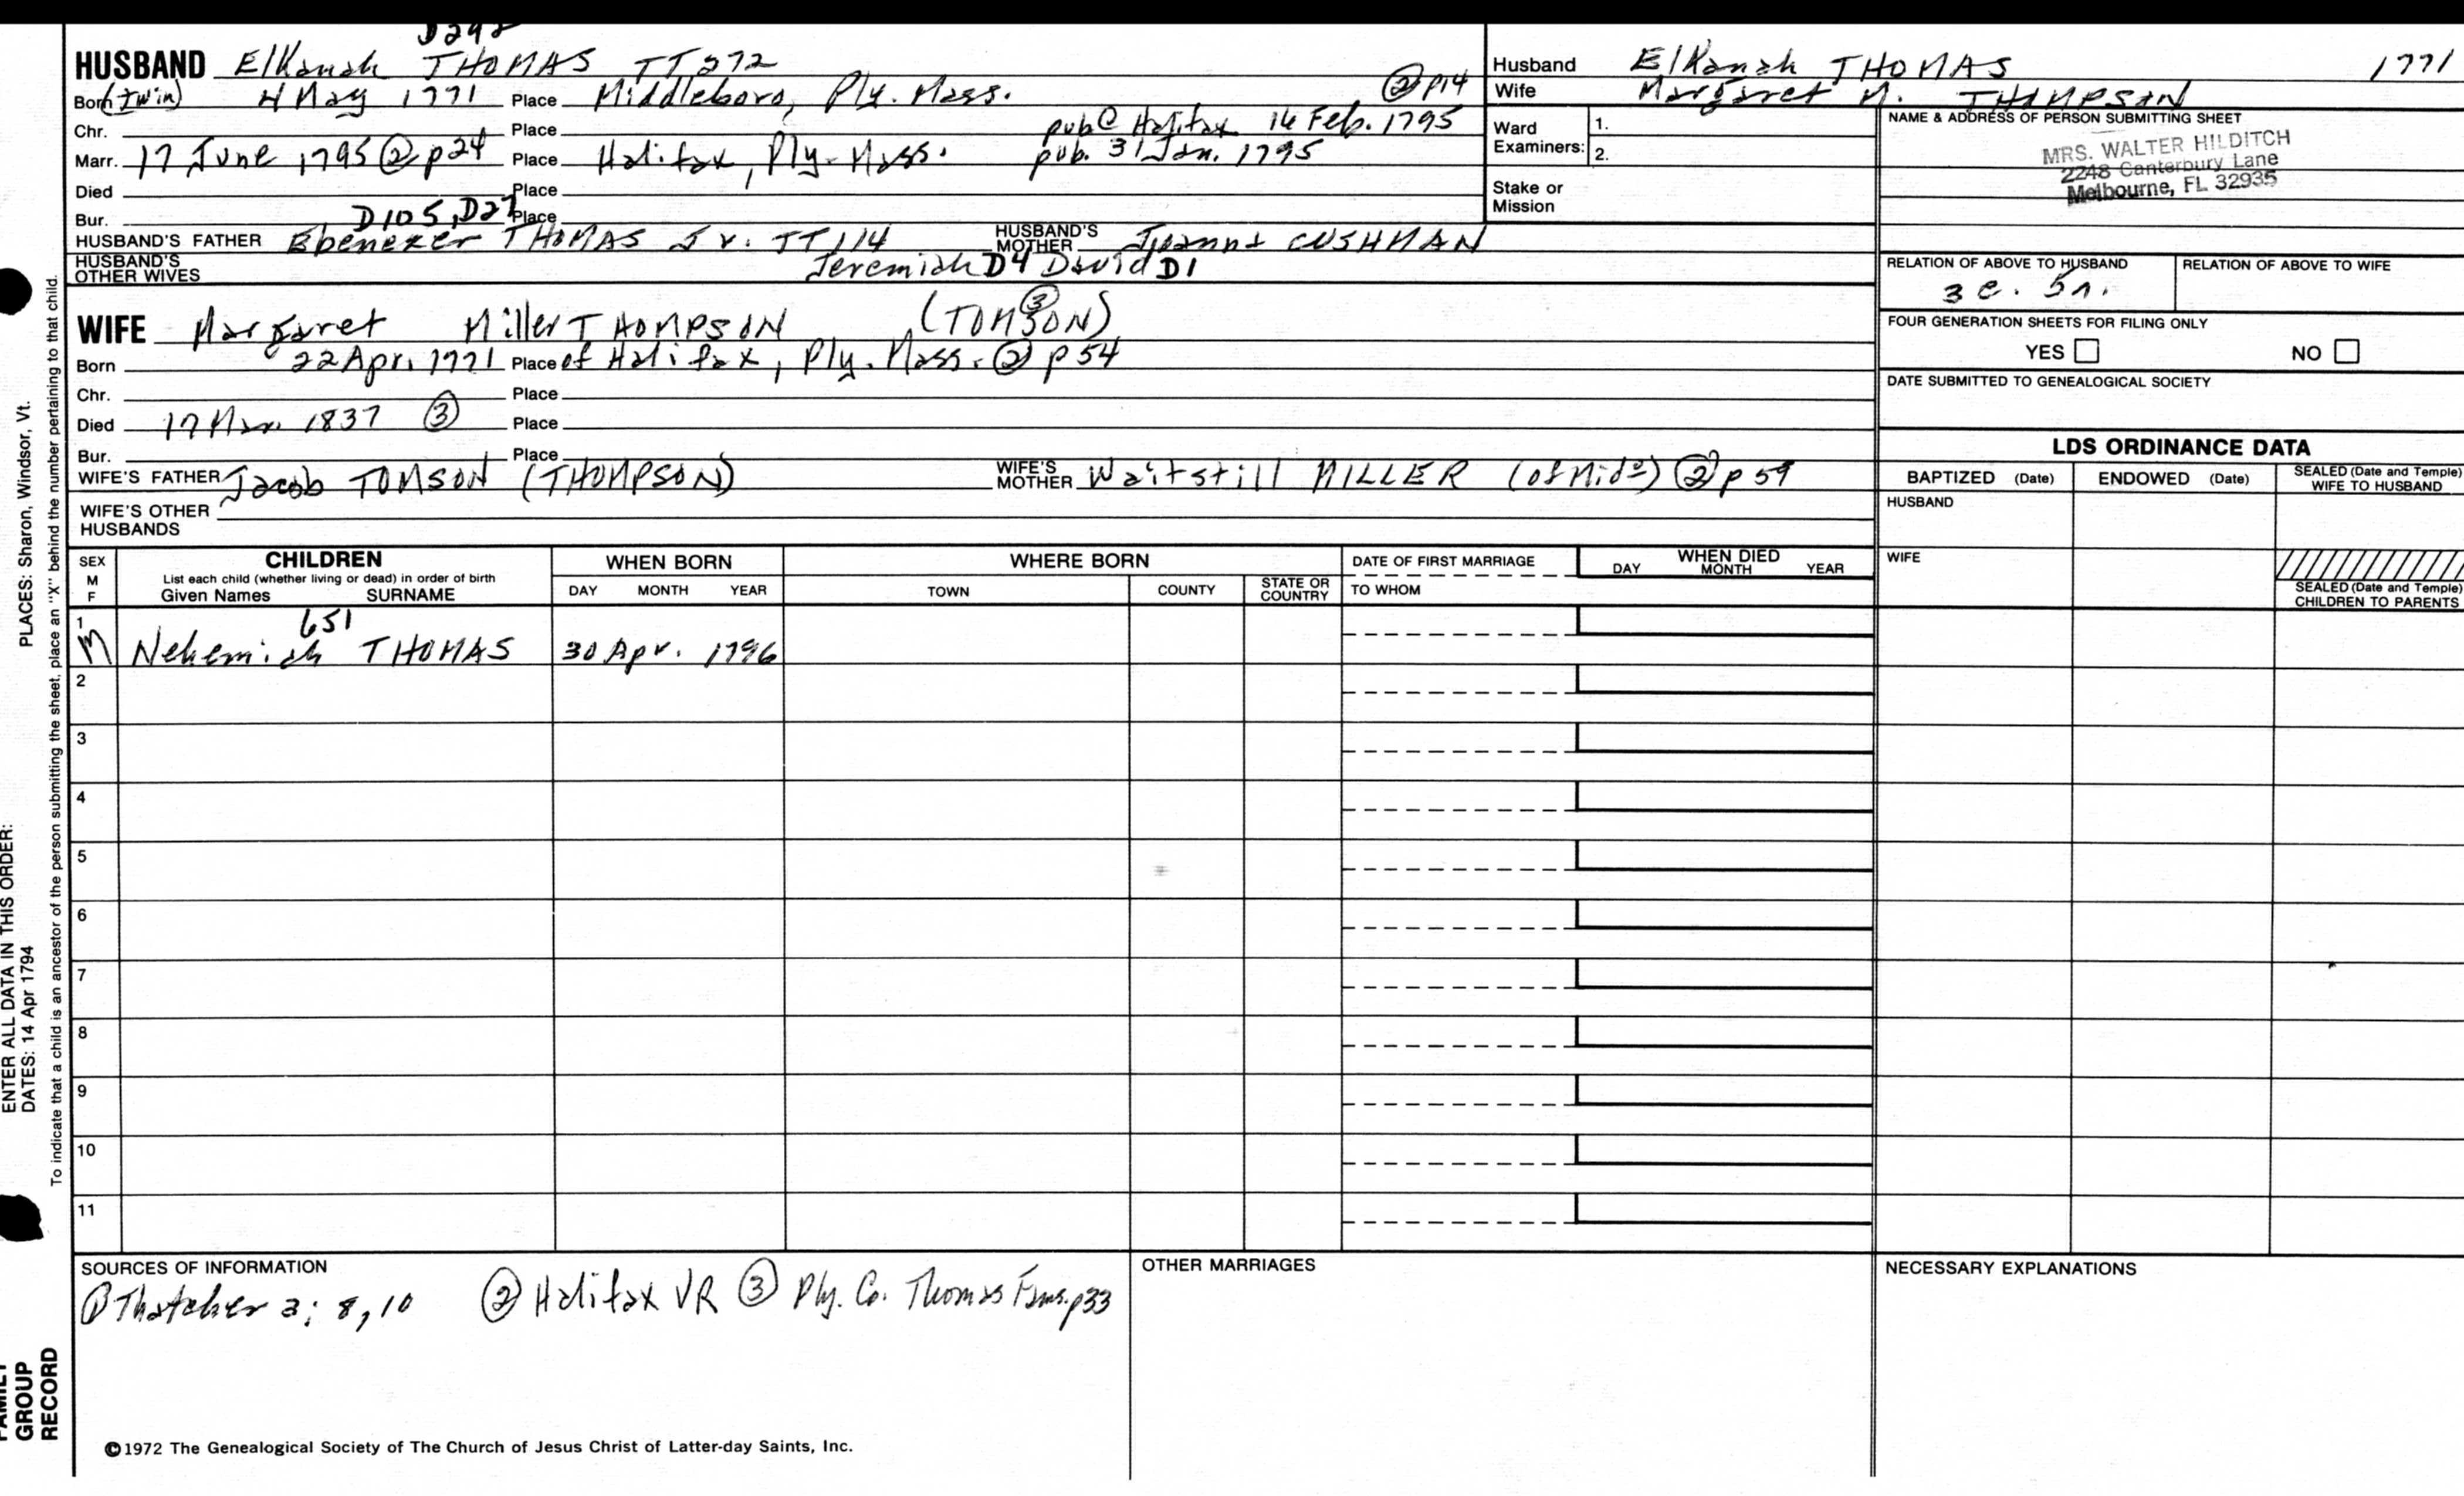 D292
HUSBAND Elkanah THOMAS TT 372
Born (twin) 4 May 1771 Place Middleboro, Ply. Mass. ② p14
Chr. Place pub @ Halifax 14 Feb. 1795
Marr. 17 June 1795 ② p24 Place Halifax, Ply. Mass. pub. 31 Jan. 1795
Died Place
Bur. D105, D27 Place
HUSBAND'S FATHER Ebenezer THOMAS Jr. TT 114 HUSBAND'S MOTHER Joanna CUSHMAN
HUSBAND'S OTHER WIVES Jeremiah D4 David D1
WIFE Margaret Miller THOMPSON (TOMSON) ③
Born 22 Apr. 1771 Place of Halifax, Ply. Mass. ② p 54
Chr. Place
Died 17 Mar. 1837 ③ Place
Bur. Place
WIFE'S FATHER Jacob TOMSON (THOMPSON) WIFE'S MOTHER Waitstill MILLER (of Mido) ② p 59
WIFE'S OTHER HUSBANDS
Husband Elkanah THOMAS 1771
Wife Margaret M. THOMPSON
Ward Examiners: 1.
2.
Stake or Mission
NAME & ADDRESS OF PERSON SUBMITTING SHEET
MRS. WALTER HILDITCH
2248 Canterbury Lane
Melbourne, FL 32935
RELATION OF ABOVE TO HUSBAND RELATION OF ABOVE TO WIFE
3 c. 5 r.
FOUR GENERATION SHEETS FOR FILING ONLY
YES NO
DATE SUBMITTED TO GENEALOGICAL SOCIETY
LDS ORDINANCE DATA
BAPTIZED (Date) ENDOWED (Date) SEALED (Date and Temple) WIFE TO HUSBAND
HUSBAND
WIFE
SEALED (Date and Temple) CHILDREN TO PARENTS
SEX M F CHILDREN WHEN BORN WHERE BORN DATE OF FIRST MARRIAGE WHEN DIED
List each child (whether living or dead) in order of birth
Given Names SURNAME DAY MONTH YEAR TOWN COUNTY STATE OR COUNTRY TO WHOM DAY MONTH YEAR
1 651
M Nehemiah THOMAS 30 Apr. 1796
2
3
4
5
6
7
8
9
10
11
SOURCES OF INFORMATION
① Thatcher 2: 8, 10 ② Halifax VR ③ Ply. Co. Thomas Fams. p33
OTHER MARRIAGES
NECESSARY EXPLANATIONS
©1972 The Genealogical Society of The Church of Jesus Christ of Latter-day Saints, Inc.
ENTER ALL DATA IN THIS ORDER:
DATES: 14 Apr 1794 PLACES: Sharon, Windsor, Vt.
To indicate that a child is an ancestor of the person submitting the sheet, place an "X" behind the number pertaining to that child.
FAMILY
GROUP
RECORD